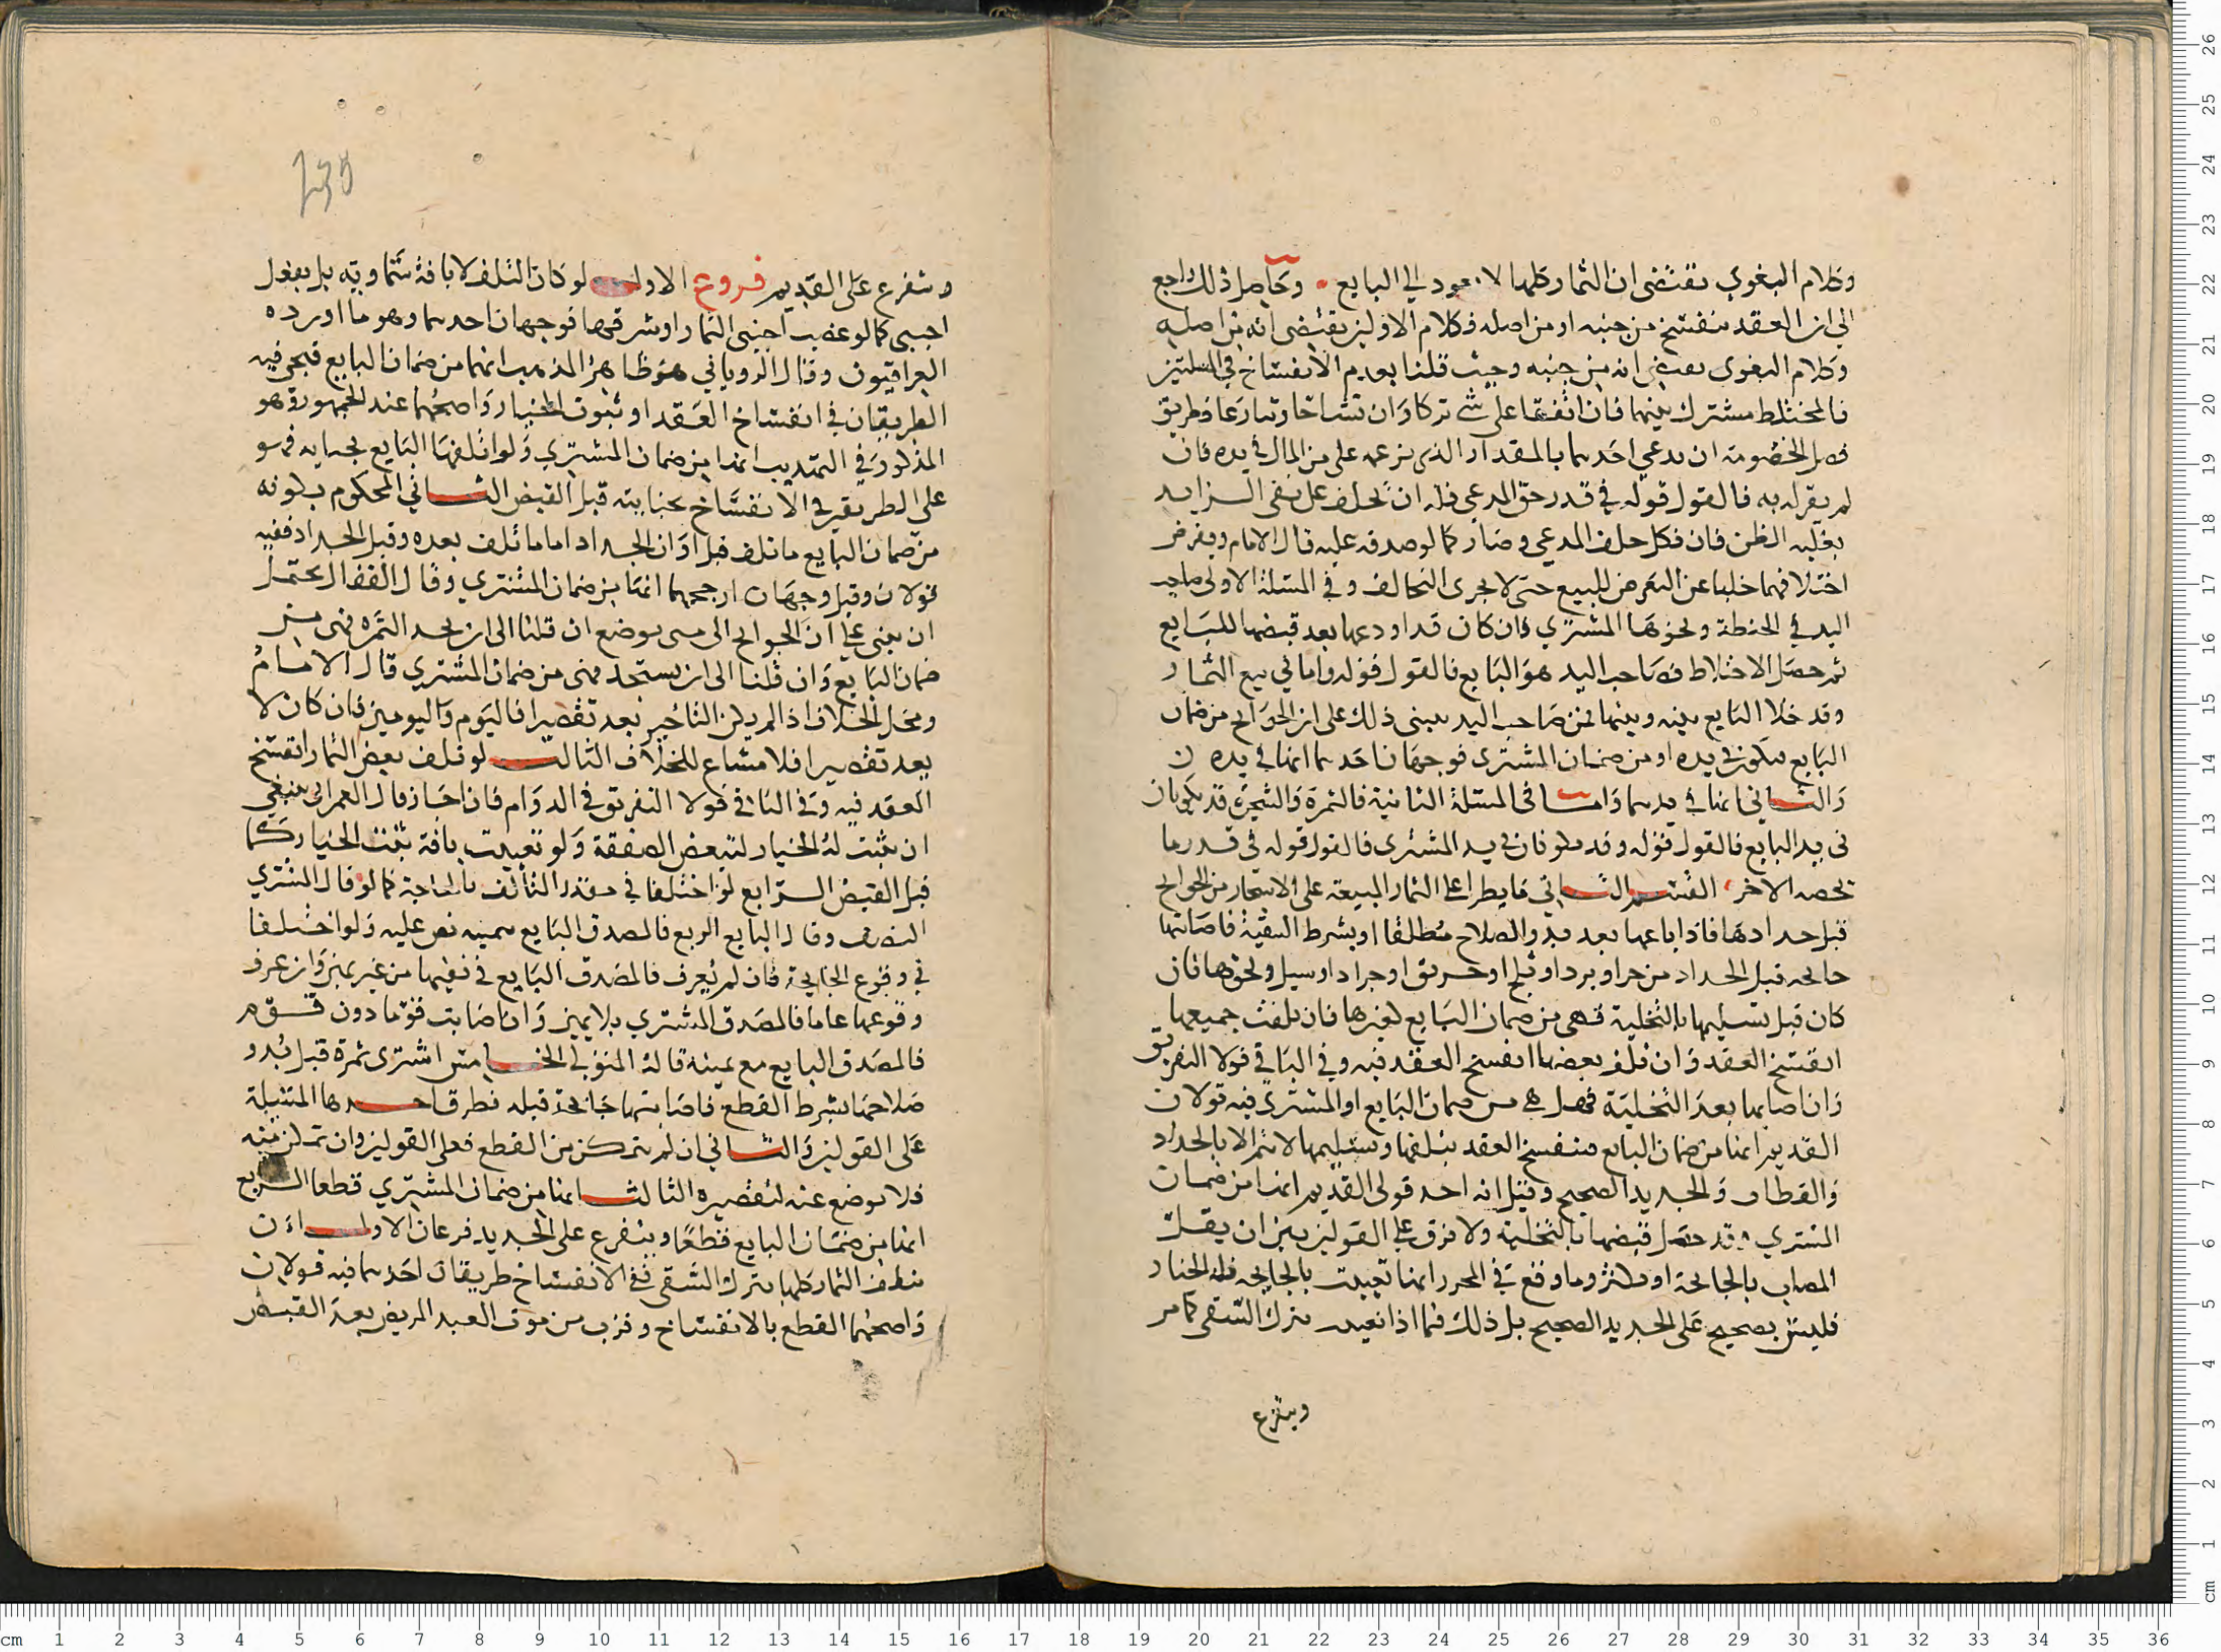 وكلام البغوي يقتضي ان الثمار كلها لا تعود الي البايع وحاصل ذلك راجع
الي ان العقد ينفسخ من حينه او من اصله فكلام الاولين يقتضي انه من اصله
وكلام البغوي يقتضي انه من حينه وحيث قلنا بعدم الانفساخ في المسلتين
فالمختلط مشترك بينهما فان اتفقا على شي تركا وان تشاحا وتنازعا فطريق
فصل الخصومة ان يدعي احدهما بالمقدار الذي يزعمه على من المال في يده فان
لم يقر له به فالقول قوله في قدر حق المدعي فله ان يحلف على نفي الزايد
بغلبه الظن فان نكل حلف المدعي وصار كما لو صدقه عليه قال الامام ويفرض
اختلافهما خليا عن التعرض للبيع حتى لا يجري التحالف وفي المسئلة الاولى صاحب
اليد في الحنطة ونحوها المشتري فان كان قد اودعها بعد قبضها للبايع
ثم حصل الاختلاط فصاحب اليد هو البايع فالقول قوله واما في بيع الثمار
وقد خلا البايع بينه وبينها فمن صاحب اليد يبنى ذلك على ان الجوايح من ضمان
البايع فتكون في يده او من ضمان المشتري فوجهان احدهما انها في يده
والثاني انها في يدهما واما في المسئلة الثانية فالثمرة والشجرة قد يكونان
في يد البايع فالقول قوله وقد يكونان في يد المشتري فالقول قوله في قدر ما
يخصه الاخر القسم الثاني ما يطرا على الثمار المبيعة على الاشجار من الجوايح
قبل جدادها فاذا باعها بعد بدو الصلاح مطلقا او بشرط التبقية فاصابتها
جايحه قبل الجداد من حر او برد او ثلج او حريق او جراد او سيل ونحوها فان
كان قبل تسليمها بالتخلية فهي من ضمان البايع كغيرها فان تلفت جميعها
انفسخ العقد وان تلف بعضها انفسخ العقد فيه وفي الباقي قولا التفريق
وان اصابها بعد التخلية فهل هي من ضمان البايع او المشتري فيه قولان
القديم انها من ضمان البايع فينفسخ العقد بتلفها وتسليمها لا يتم الا بالجداد
والقطاف والجديد الصحيح وقيل انه احد قولي القديم انها من ضمان
المشتري وقد حصل قبضها بالتخلية ولا فرق على القولين بين ان يقل
المصاب بالجايحة او يكثر وما وقع في المحرر انها تعيبت بالجايحه فله الخيار
فليس بصحيح على الجديد الصحيح بل ذلك فيما اذا تعيبت بترك السقي كما مر
ويتفرع
ويتفرع على القديم فروع الاول لو كان التلف لا بافة سماوية بل بفعل
اجنبي كما لو غصب اجنبي الثمار او سرقها فوجهان احدهما وهو ما اورده
العراقيون وقال الروياني هو ظاهر المذهب انها من ضمان البايع فيجي فيه
الطريقان في انفساخ العقد او ثبوت الخيار واصحهما عند الجمهور وهو
المذكور في التهذيب انها من ضمان المشتري ولو اتلفها البايع بجنايه فهو
على الطريقين في الانفساخ بجنايته قبل القبض الثاني المحكوم بكونه
من ضمان البايع ما تلف قبل اوان الجداد اما ما تلف بعده وقبل الجداد ففيه
قولان وقيل وجهان ارجحهما انها من ضمان المشتري وقال القفال يحتمل
ان يبنى على ان الجوايح الى متى يوضع ان قلنا الى ان يجد الثمره فهي من
ضمان البايع وان قلنا الى ان يستجد فهي من ضمان المشتري قال الامام
ومحل الخلاف اذا لم يكن التاخير يعد تقصيرا فاليوم واليومين فان كان لا
يعد تقصيرا فلا مشاع للخلاف الثالث لو تلف بعض الثمار انفسخ
العقد فيه وفي الباقي قولا التفريق في الدوام فان اجاز قال العمراني ينبغي
ان يثبت له الخيار لتبعض الصفقة ولو تعيبت بافة يثبت الخيار كما
قبل القبض الرابع لو اختلفا في مقدار التالف بالجايحة كما لو قال المشتري
النصف وقال البايع الربع فالمصدق البايع بيمينه نص عليه ولو اختلفا
في وقوع الجايحة فان لم يعرف فالمصدق البايع في نفيها من غير يمين وان عرف
وقوعها عاما فالمصدق المشتري بلا يمين وان اصابت قوما دون قوم
فالمصدق البايع مع يمينه قاله المتولي الخامس اشترى ثمرة قبل بدو
صلاحها بشرط القطع فاصابتها جايحة قبله فطرق احدها المتنبلة
على القولين والثاني ان لم يتمكن من القطع فعلى القولين وان تمكن منه
فلا يوضع عنه لتقصيره الثالث انها من ضمان المشتري قطعا الرابع
انها من ضمان البايع قطعا ويتفرع على الجديد فرعان الاول اذا
تلفت الثمار كلها بترك السقي ففي الانفساخ طريقان احدهما فيه قولان
واصحهما القطع بالانفساخ وقرب من موت العبد المريض بعد القبض